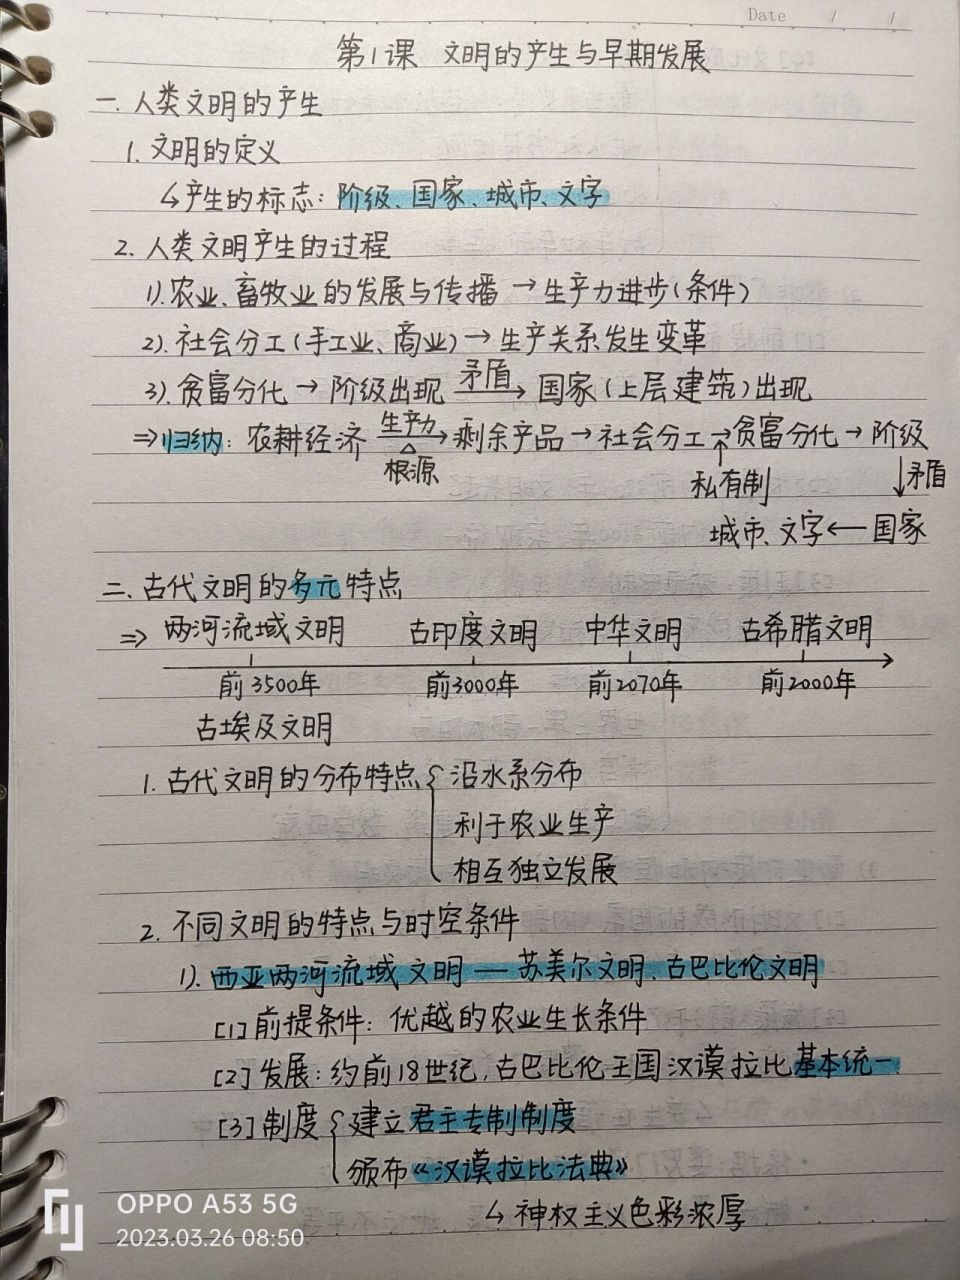 Date / /
第1课 文明的产生与早期发展
一. 人类文明的产生
1. 文明的定义
↳产生的标志: 阶级、国家、城市、文字
2. 人类文明产生的过程
1). 农业、畜牧业的发展与传播 → 生产力进步(条件)
2). 社会分工(手工业、商业) → 生产关系发生变革
3). 贫富分化 → 阶级出现 矛盾→ 国家(上层建筑)出现
⇒归纳: 农耕经济 生产力→ 剩余产品 → 社会分工 → 贫富分化 → 阶级
△根源 ↑私有制 ↓矛盾
城市、文字 ← 国家
二. 古代文明的多元特点
⇒ 两河流域文明 古印度文明 中华文明 古希腊文明
前3500年 前3000年 前2070年 前2000年
古埃及文明
1. 古代文明的分布特点 { 沿水系分布
利于农业生产
相互独立发展
2. 不同文明的特点与时空条件
1). 西亚两河流域文明 — 苏美尔文明、古巴比伦文明
[1] 前提条件: 优越的农业生长条件
[2] 发展: 约前18世纪, 古巴比伦王国汉谟拉比基本统一.
[3] 制度 { 建立君主专制制度
颁布《汉谟拉比法典》
↳ 神权主义色彩浓厚
OPPO A53 5G
2023.03.26 08:50